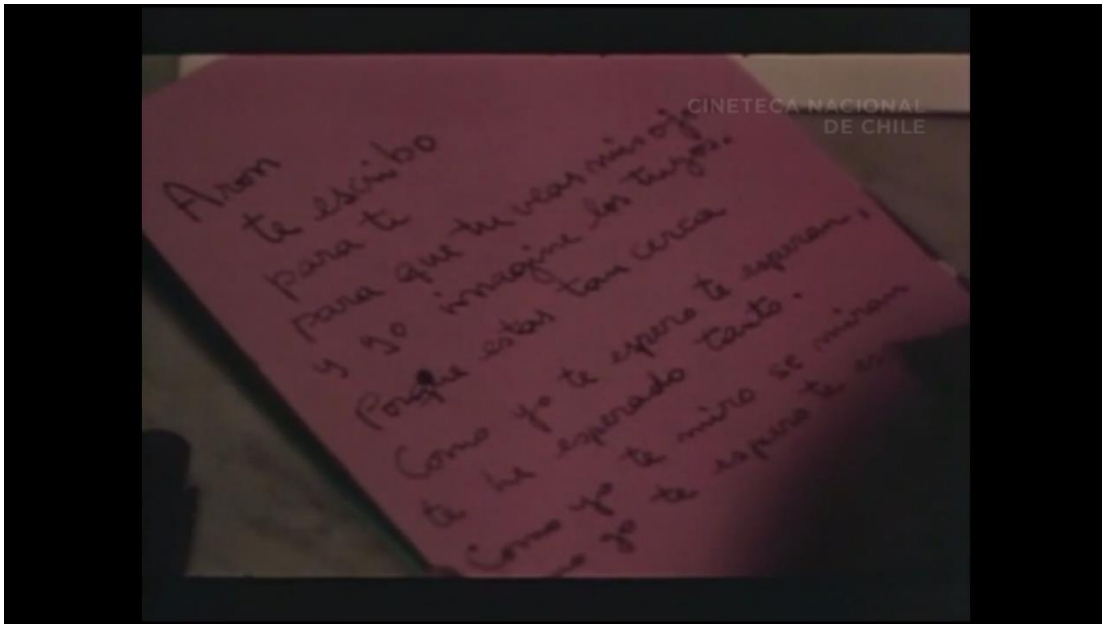 CINETECA NACIONAL
DE CHILE
Aron
te escribo
para ti
para que tu veas mis ojos
y yo imagine los tuyos.
Porque estas tan cerca
Como yo te espero te esperan,
te he esperado tanto.
Como yo te miro se miran
yo te espero te